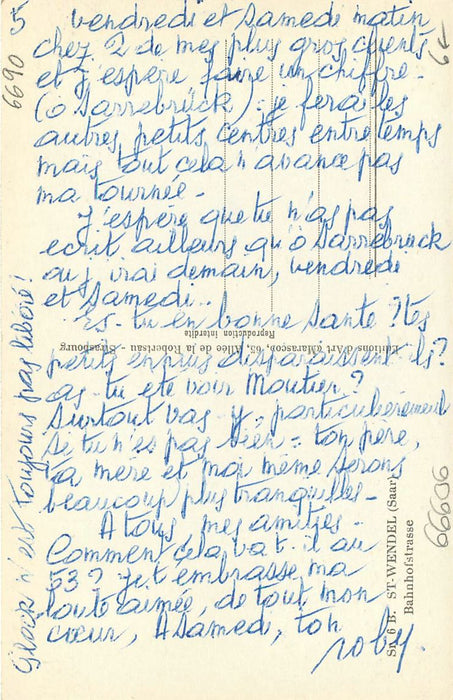 5
vendredi et samedi matin
chez 2 de mes plus gros clients
et j'espère faire un chiffre -
(à Sarrebrück) : je ferai les
autres petits centres entre temps
mais tout cela n'avance pas
ma tournée -
J'espère que tu n'as pas
ecrit ailleurs qu'à Sarrebrück
où j'irai demain, vendredi
et samedi..
Es-tu en bonne santé ? tes
petits ennuis disparaissent-ils ?
as-tu ete voir Moutier ?
surtout vas-y, particulierement
si tu n'es pas bien : ton père,
ta mere et moi même serons
beaucoup plus tranquilles -
A tous mes amitiés -
Comment cela va t-il au
53 ? je t'embrasse ma
toute aimée, de tout mon
cœur, A samedi, ton
roby.
n'est toujours pas libéré !
6690
66606
Editions d'Art d'Alarasçon, 65, Allée de la Robertsau - Strasbourg
Reproduction interdite
Sn 6 B. ST-WENDEL (Saar)
Bahnhofstrasse